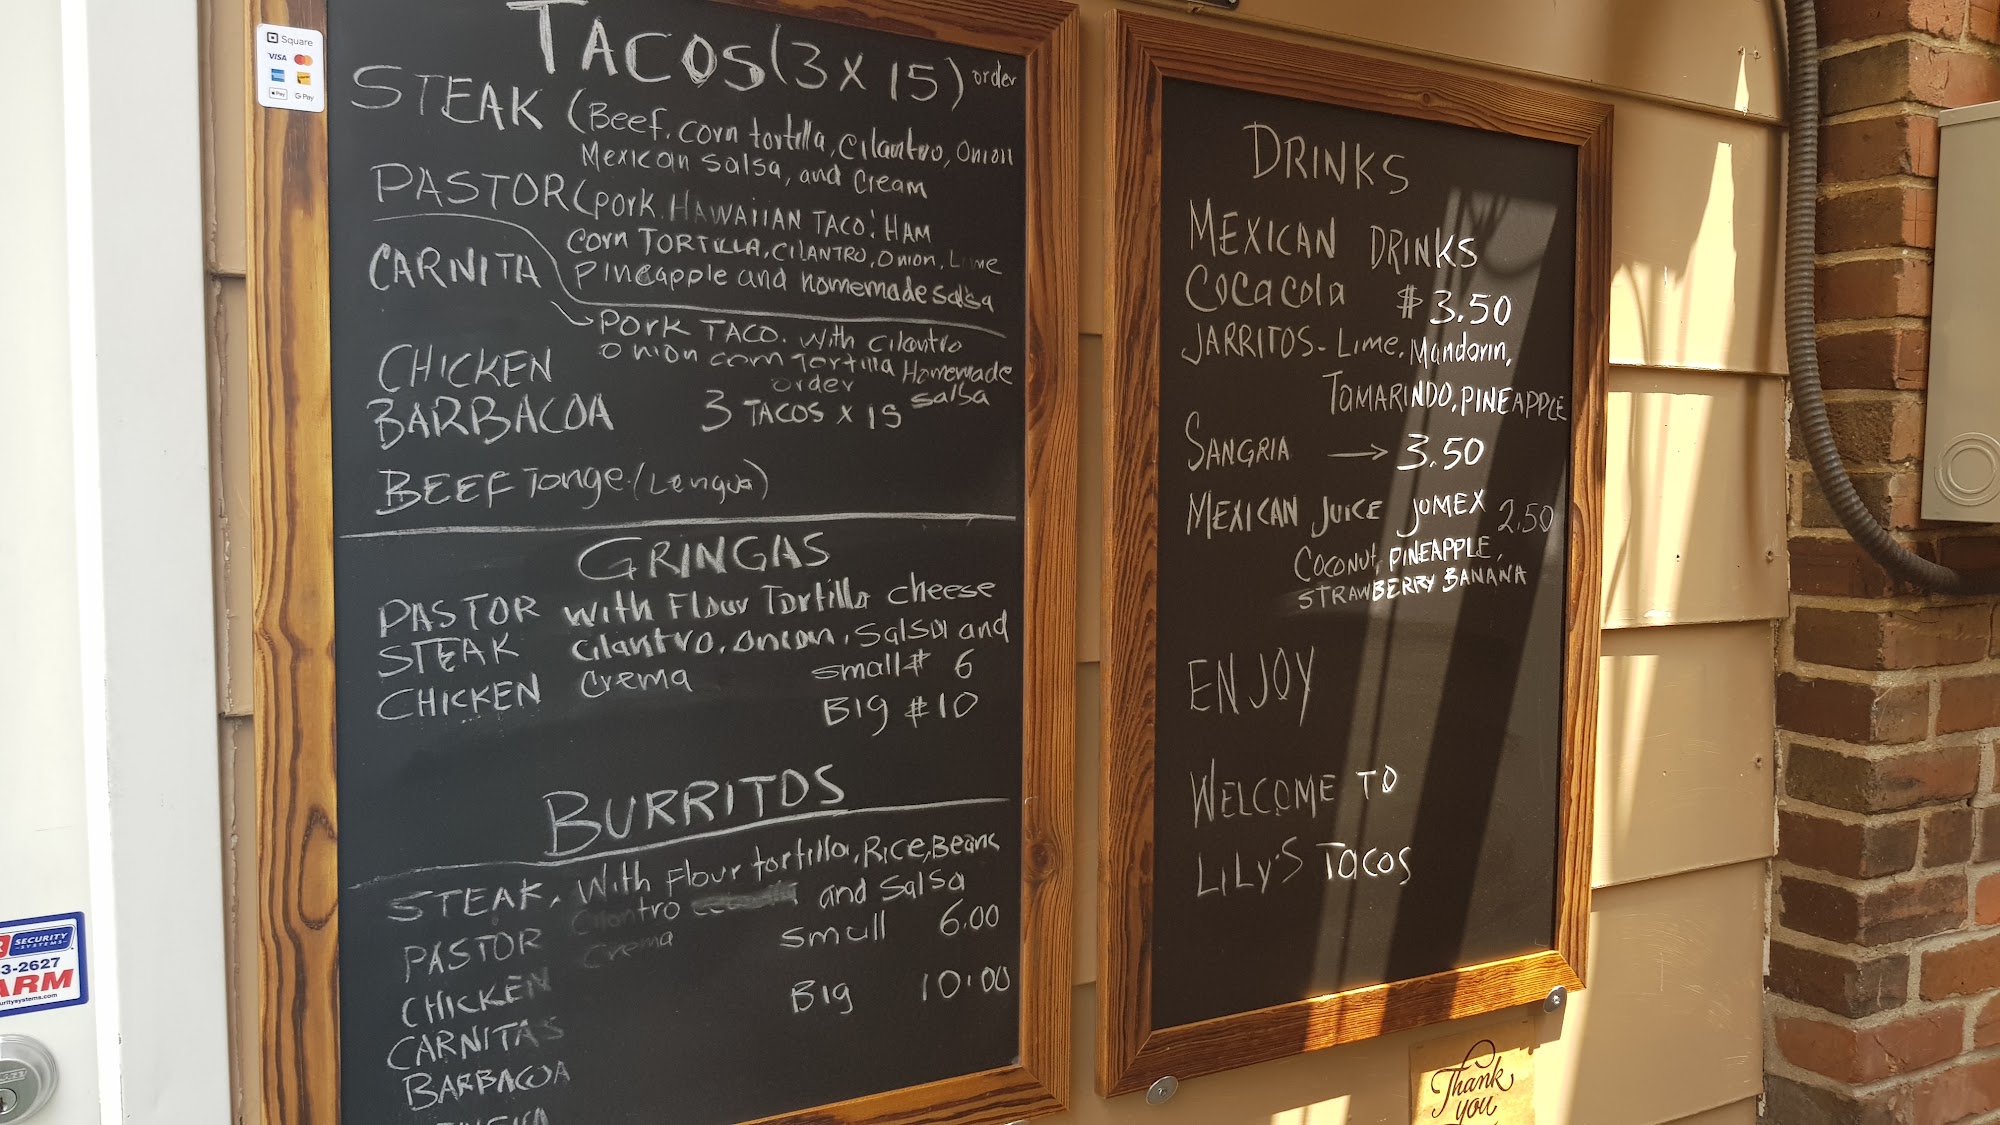 Square
VISA
Pay
G Pay
TACOS (3 X 15) order
STEAK (Beef. corn tortilla, Cilantro, Onion
Mexican Salsa, and Cream
PASTOR (pork. HAWAIIAN TACO! HAM
Corn TORTILLA, CILANTRO, Onion, Lime
Pineapple and homemade salsa
CARNITA
PORK TACO. With cilantro
Onion corn Tortilla Homemade
salsa
CHICKEN
BARBACOA
order
3 TACOS X 15
BEEF Tonge (Lengua)
GRINGAS
PASTOR
STEAK
CHICKEN
With Flour Tortilla cheese
Cilantro, onion, Salsa and
crema
small $ 6
Big $ 10
BURRITOS
STEAK,
PASTOR
CHICKEN
CARNITAS
BARBACOA
With Flour tortilla, Rice, Beans
Cilantro and Salsa
Crema
Small 6.00
Big 10.00
DRINKS
MEXICAN DRINKS
COCACOLA $3.50
JARRITOS - Lime, Mandarin,
TAMARINDO, PINEAPPLE
SANGRIA → 3.50
MEXICAN JUICE JUMEX 2.50
Coconut, PINEAPPLE,
STRAWBERRY BANANA
ENJOY
WELCOME TO
LILY'S TACOS
SECURITY
SYSTEMS
3-2627
ARM
Thank
you